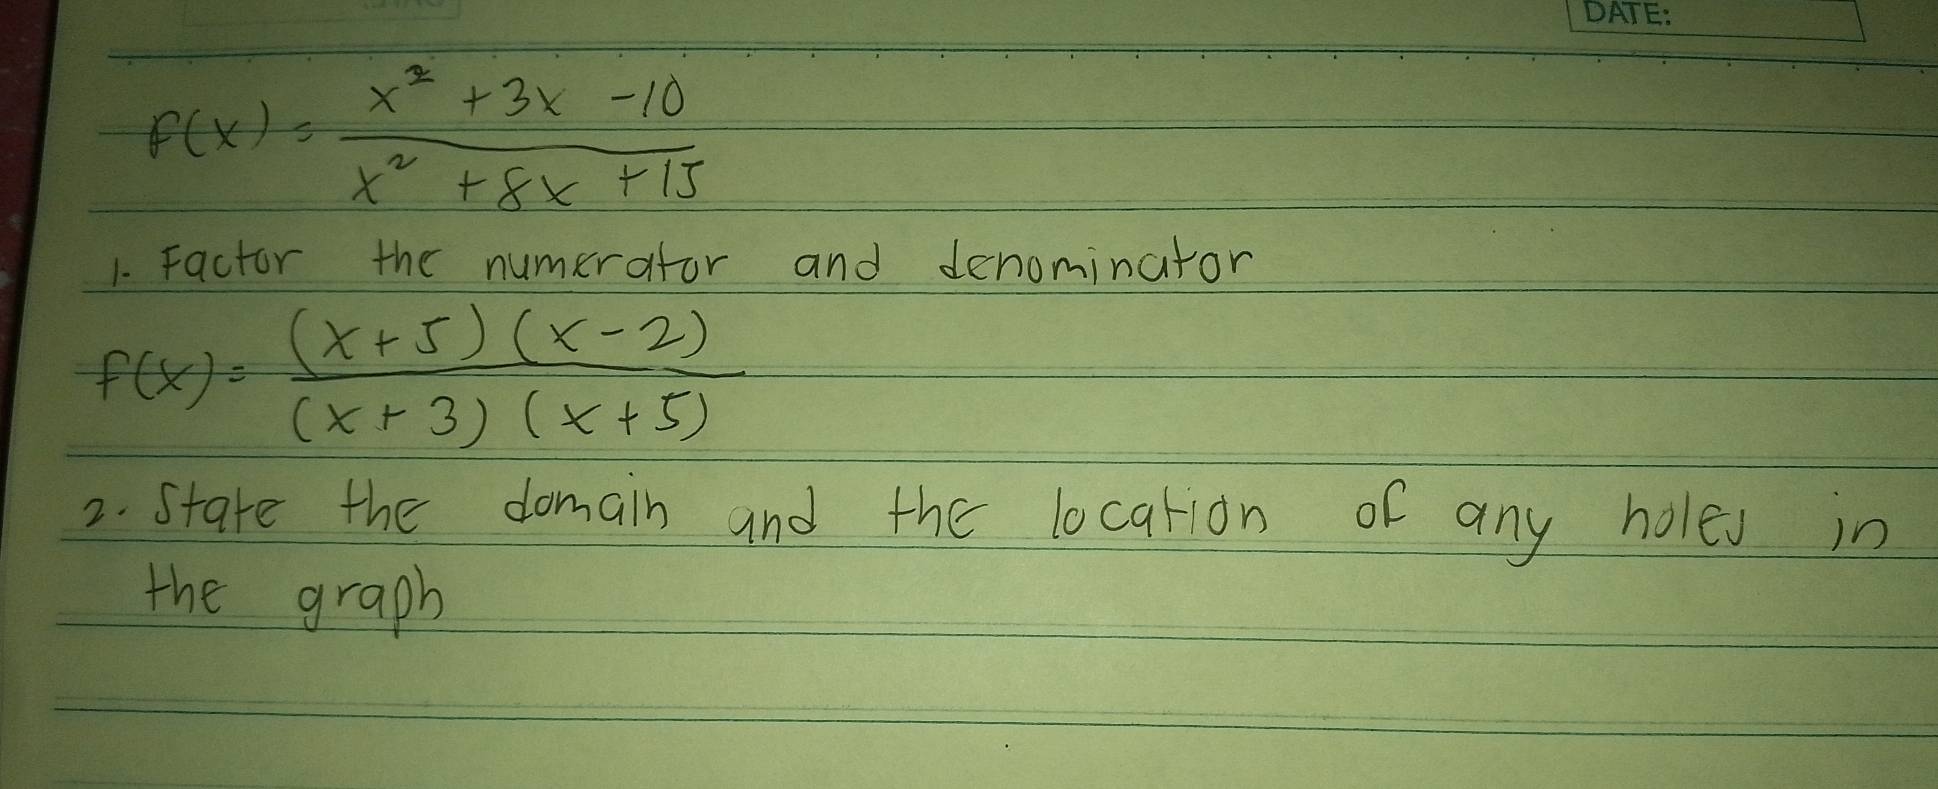 DATE:
f(x) = x² + 3x - 10
x² + 8x + 15
1. Factor the numerator and denominator
f(x) = (x + 5) (x - 2)
(x + 3) (x + 5)
2. State the domain and the location of any holes in
the graph